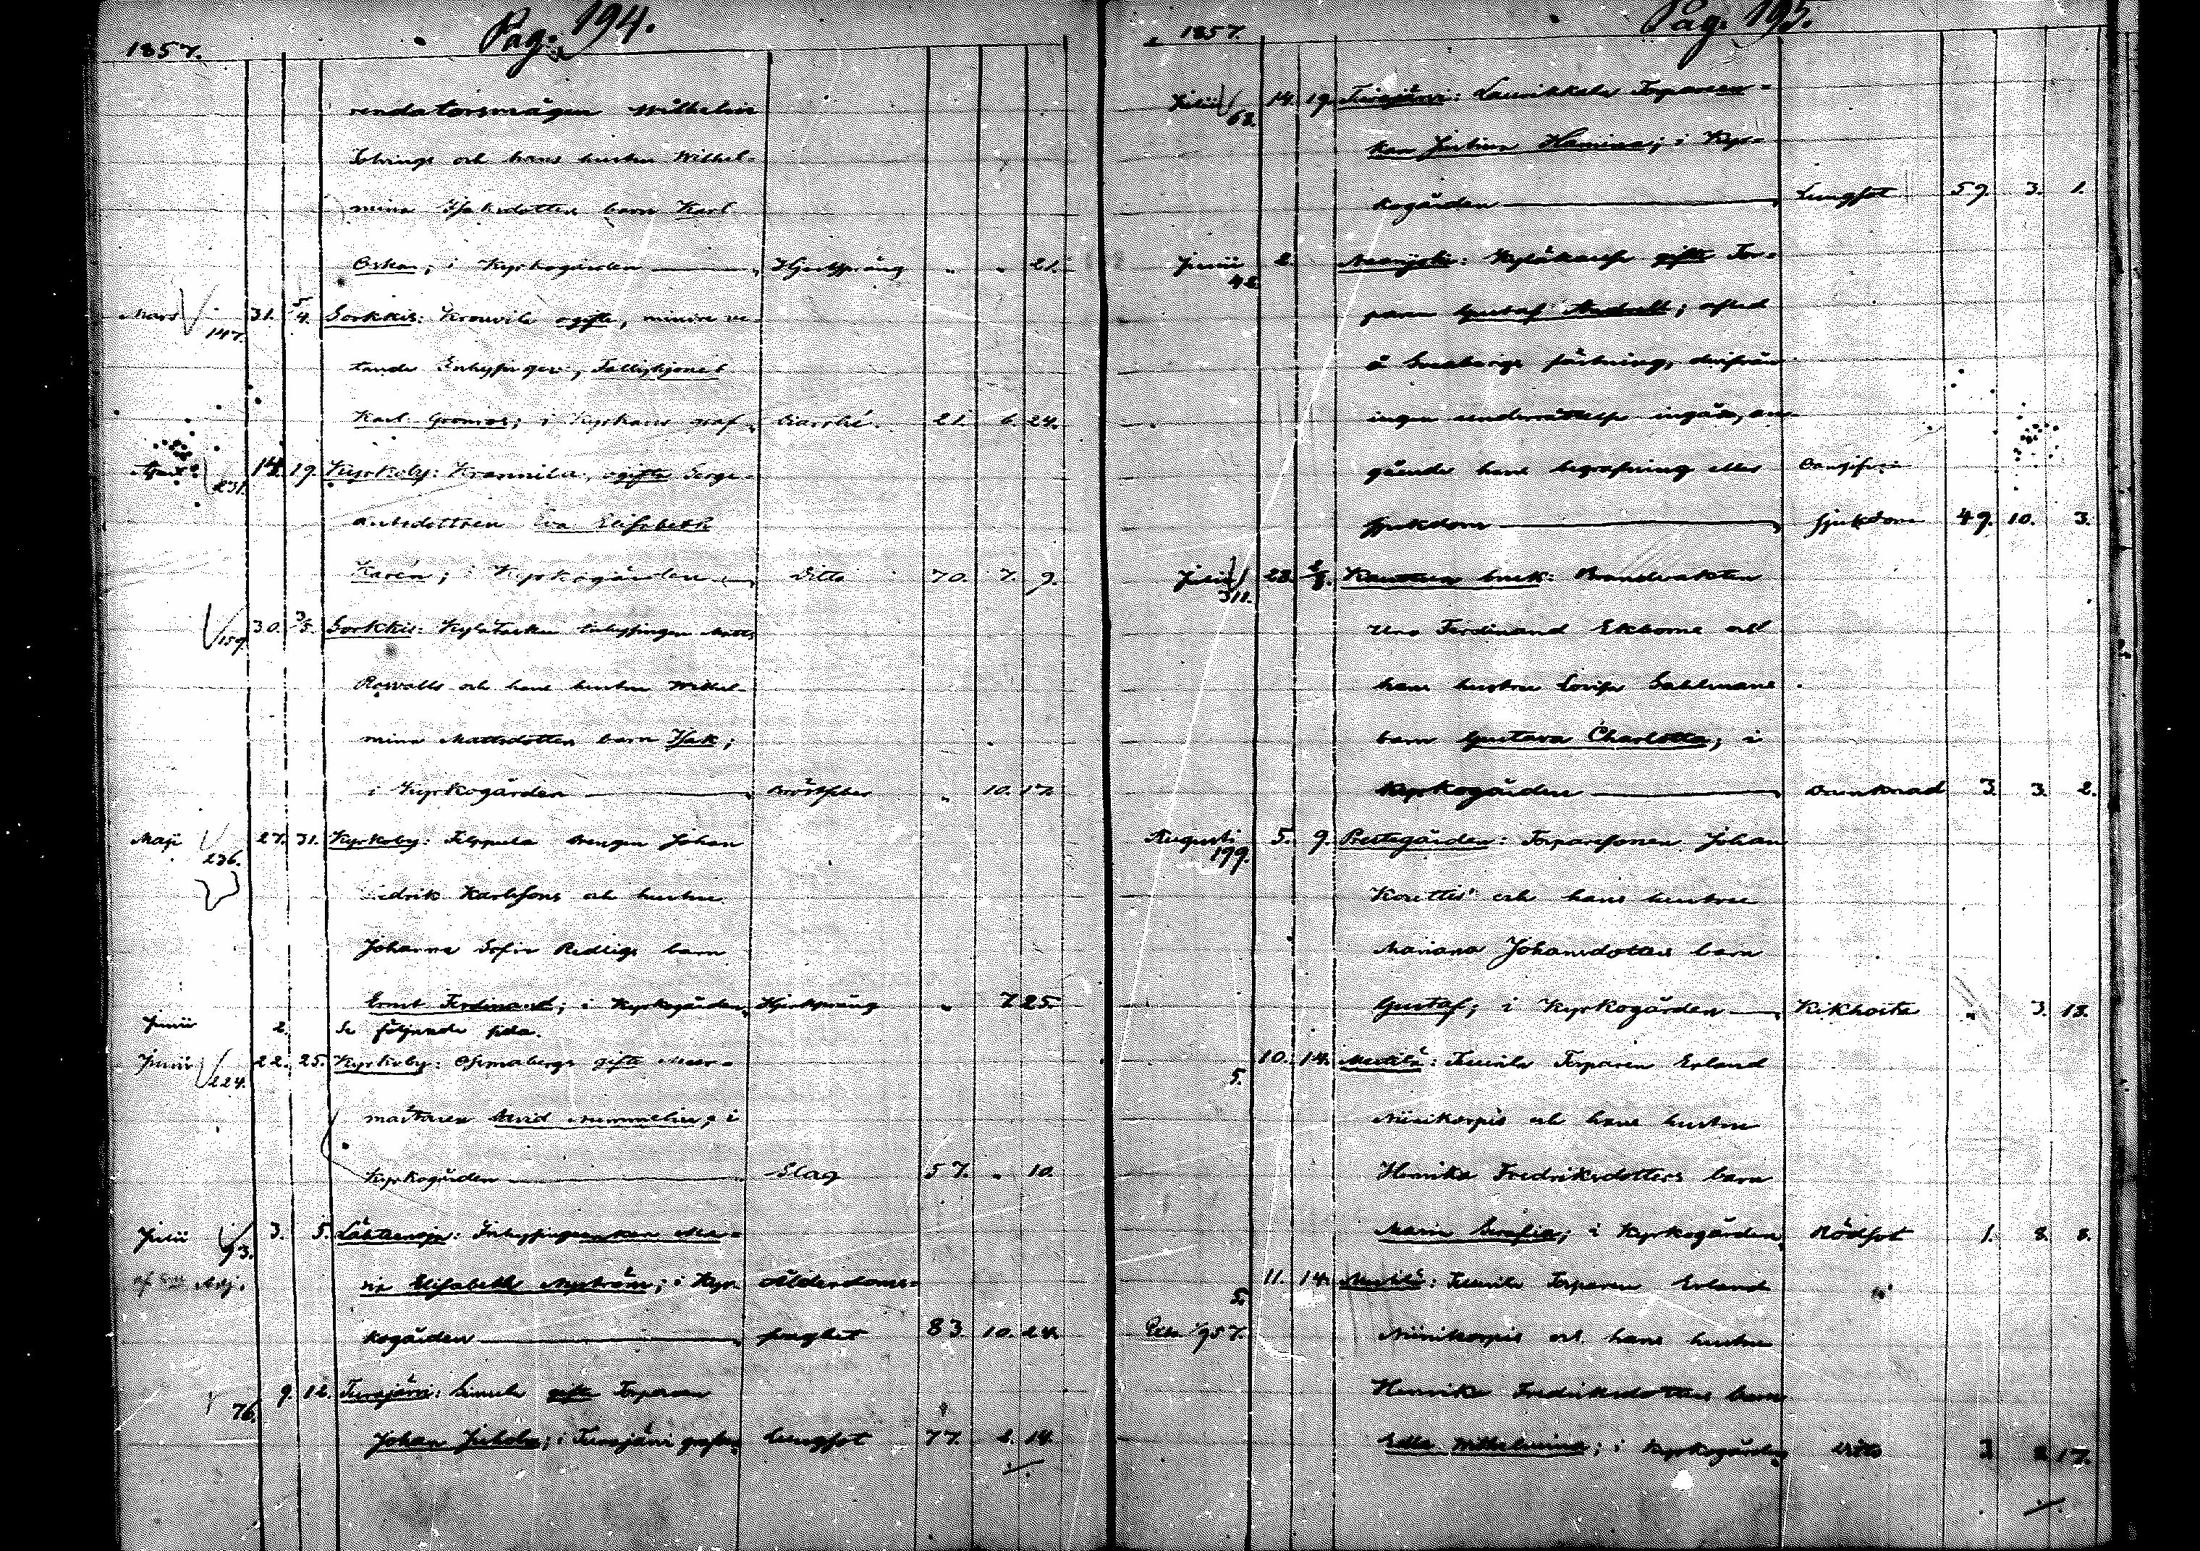 Pag. 194.
1857.
rendatorsmågen Wilhelm
och hans hustru Wilhel-
mina Isaksdotters barn Karl
Oskar; i Kyrkogården — Hjertsprång " " 21.
Mars 147. 31. 5/4. Sorkkis: Krouvila ogifte, mindre ve-
tande Inhysingen, Fattighjonet
Karl Gronroos; i Kyrkans graf 21. 6. 24.
231. 14. 19. Kyrkoby: Krannila, ogifta Serge-
antsdottren Eva Elisabeth
Karén; i Kyrkogården — Ditto 70. 7. 9.
159. 30. 3/5. Sorkkis: Inhysingen Matts
Rosvalls och hans hustru Wilhel-
mina Mattsdotters barn Isak;
i Kyrkogården — Bröstfeber " 10. 17.
Maji 236. 27. 31. Kyrkoby: Filppula Drengen Johan
edrik Karlssons och hustru
Johanna Sofia Redligs barn
Ernst Ferdinand; i Kyrkogården, Hjertsprång " 7. 25.
Junii 2. Se följande sida.
Junii 224. 22. 25. Kyrkoby: gifte Mur-
mästaren Arvid Nummelin; i
Kyrkogården — Slag 57. " 10.
Julii 93. 3. 5. Inhysingsenkan Ma-
ria Elisabeth Nyström; i Kyr- Ålderdoms-
kogården — svaghet 83. 10. 24.
76. 9. 12. Turajärvi: Simula gifte Torparen
Johan Juhola; i Turajärvi graf Lungsot 77. 2. 14.
Pag. 195.
1857.
Julii 68. 14. 19. Turajärvi: Laurikkala Torparen-
kan Justina Hamina; i Kyr-
kogården — Lungsot 59. 3. 1.
Junii 42. 2. gifte Tor-
paren Gustaf Andell; afled
å Sveaborgs fästning, derifrån
ingen underrättelse ingått, an-
gående hans begrafning eller
sjukdom — sjukdom 49. 10. 3.
Julii 311. 28. 2/8. Kauttua bruk: Brandvakten
Uno Ferdinand Ekboms och
hans hustru Lovisa Sahlmans
barn Gustava Charlotta; i
Kyrkogården — Drunknad 3. 3. 2.
Augusti 199. 5. 9. Prestegården: Torparesonen Johan
Korittis' och hans hustru
Mariana Johansdotters barn
Gustaf; i Kyrkogården — Kikhosta " 3. 18.
5. 10. 14. Mestilä: Tuurila Torparen Erland
Niinikorpis och hans hustru
Henrika Fredriksdotters barn
Maria Serafia; i Kyrkogården, Rödsot 1. 8. 8.
5. 11. 14. Mestilä: Tuurila Torparen Erland
Niinikorpis och hans hustru
Henrika Fredriksdotters barn
Edla Wilhelmina; i Kyrkogården ditto 3. 17.